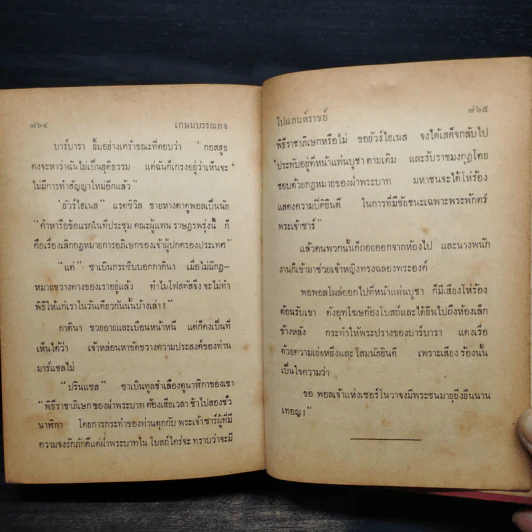 ๗๖๔
เกษมบรรณกิจ
บาร์บารา ยิ้มอย่างเคร้าขณะที่ตอบว่า "กอสสุธ
คงจะหาว่าฉันไม่เป็นยุติธรรม แต่ฉันก็เกรงอยู่ว่าเห็นจะ
ไม่มีการทำสัญญาใหม่อีกแล้ว"
"ฮัวร์ไฮเนส" แรคซิวิล ชายหางตาดูพอลเป็นนัย
"คำหารือข้อแรกในที่ประชุม คณะผู้แทน ราษฎรพรุ่งนี้ ก็
คือเรื่องเลิกกฎหมายการอภิเษกของเจ้าผู้ปกครองประเทศ"
"แต่" ซาเบินกระซิบบอกกาตินา เมื่อไม่มีกฎ-
หมายขวางทางของเราอยู่แล้ว ทำไมโฟสคัสจึง จะไม่ทำ
พิธีให้แก่เราในวันเดียวกันนั้นบ้างเล่า?"
กาตินา ขวยอายและเบือนหน้าหนี แต่ก็คงเป็นที่
เห็นได้ว่า เจ้าหล่อนหาขัดขวางความประสงค์ของท่าน
มาร์แซลไม่
"ปรินเซส" ซาเบินทูลชำเลืองดูนาฬิกาของเขา
"พิธีราชาภิเษก ของฝ่าพระบาท ต้องเสียเวลา ช้าไปสองชั่ว
นาฬิกา โดยการกระทำของท่านดุกกับ พระเจ้าซาร์ผู้ที่มี
ความจงรักภักดีแด่ฝ่าพระบาทใน โบสถ์ใคร่จะ ทราบว่าจะมี
โปแลนด์ราชย์
๗๖๕
พิธีราชาภิเษกหรือไม่ ขอฮัวร์ไฮเนส จงได้เสด็จกลับไป
ประทับอยู่ที่หน้าแท่นบูชา ตามเดิม และรับราชมงกุฎโดย
ชอบด้วยกฎหมายของฝ่าพระบาท มหาชนจะได้โห่ร้อง
แสดงความปีติยินดี ในการที่มีชัยชนะเฉพาะพระพักตร์
พระเจ้าซาร์"
แล้วคนพวกนั้นก็ถอยออกจากห้องไป และนางพนัก
งานก็เข้ามาช่วยเจ้าหญิงทรงฉลองพระองค์
พอพอลโผล่ออกไปที่หน้าแท่นบูชา ก็มีเสียงโห่ร้อง
ต้อนรับเขา ดังอุทโฆษก้องโบสถ์และได้ยินไปถึงห้องเล็ก
ข้างหลัง กระทำให้พระปรางของบาร์บารา แดงเรื่อ
ด้วยความเย่อหยิ่งและโสมนัสยินดี เพราะเสียง ร้องนั้น
เป็นใจความว่า
ขอ พอลเจ้าแห่งเซอร์โนวาจงมีพระชนมายุยิ่งยืนนาน
เทอญ!"